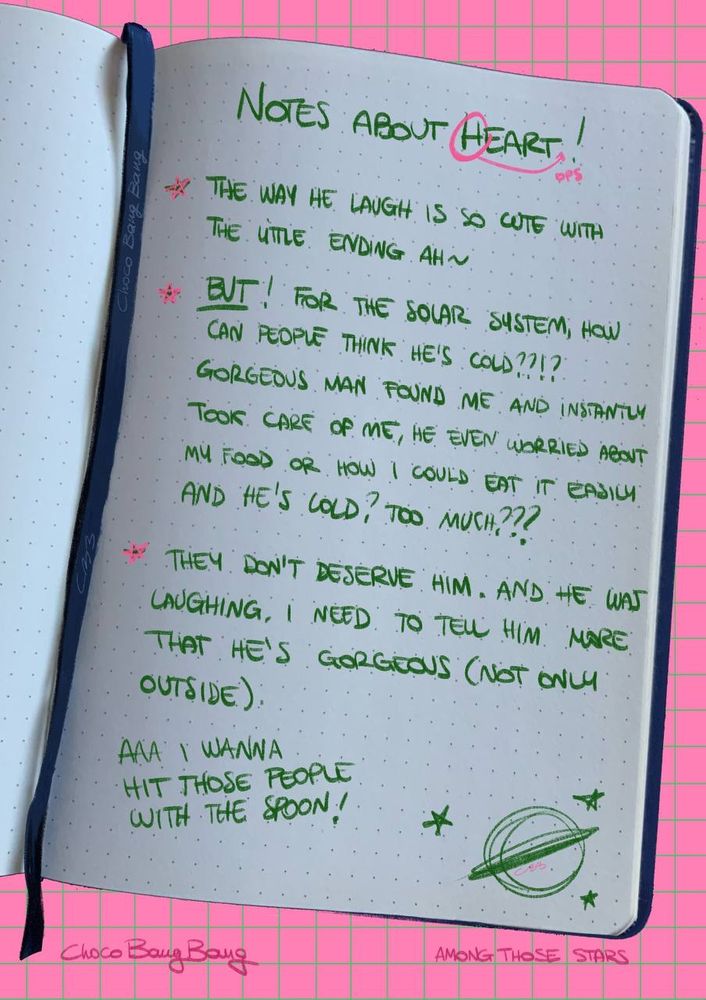 NOTES ABOUT HEART!
OPS
THE WAY HE LAUGH IS SO CUTE WITH
THE LITTLE ENDING AH~
BUT! FOR THE SOLAR SYSTEM, HOW
CAN PEOPLE THINK HE'S COLD??!?
GORGEOUS MAN FOUND ME AND INSTANTLY
TOOK CARE OF ME, HE EVEN WORRIED ABOUT
MY FOOD OR HOW I COULD EAT IT EASILY
AND HE'S COLD? TOO MUCH???
THEY DON'T DESERVE HIM. AND HE WAS
LAUGHING. I NEED TO TELL HIM MORE
THAT HE'S GORGEOUS (NOT ONLY
OUTSIDE).
AAA I WANNA
HIT THOSE PEOPLE
WITH THE SPOON!
Choco Bang Bang
CBB
CBB
Choco Bang Bang
AMONG THOSE STARS